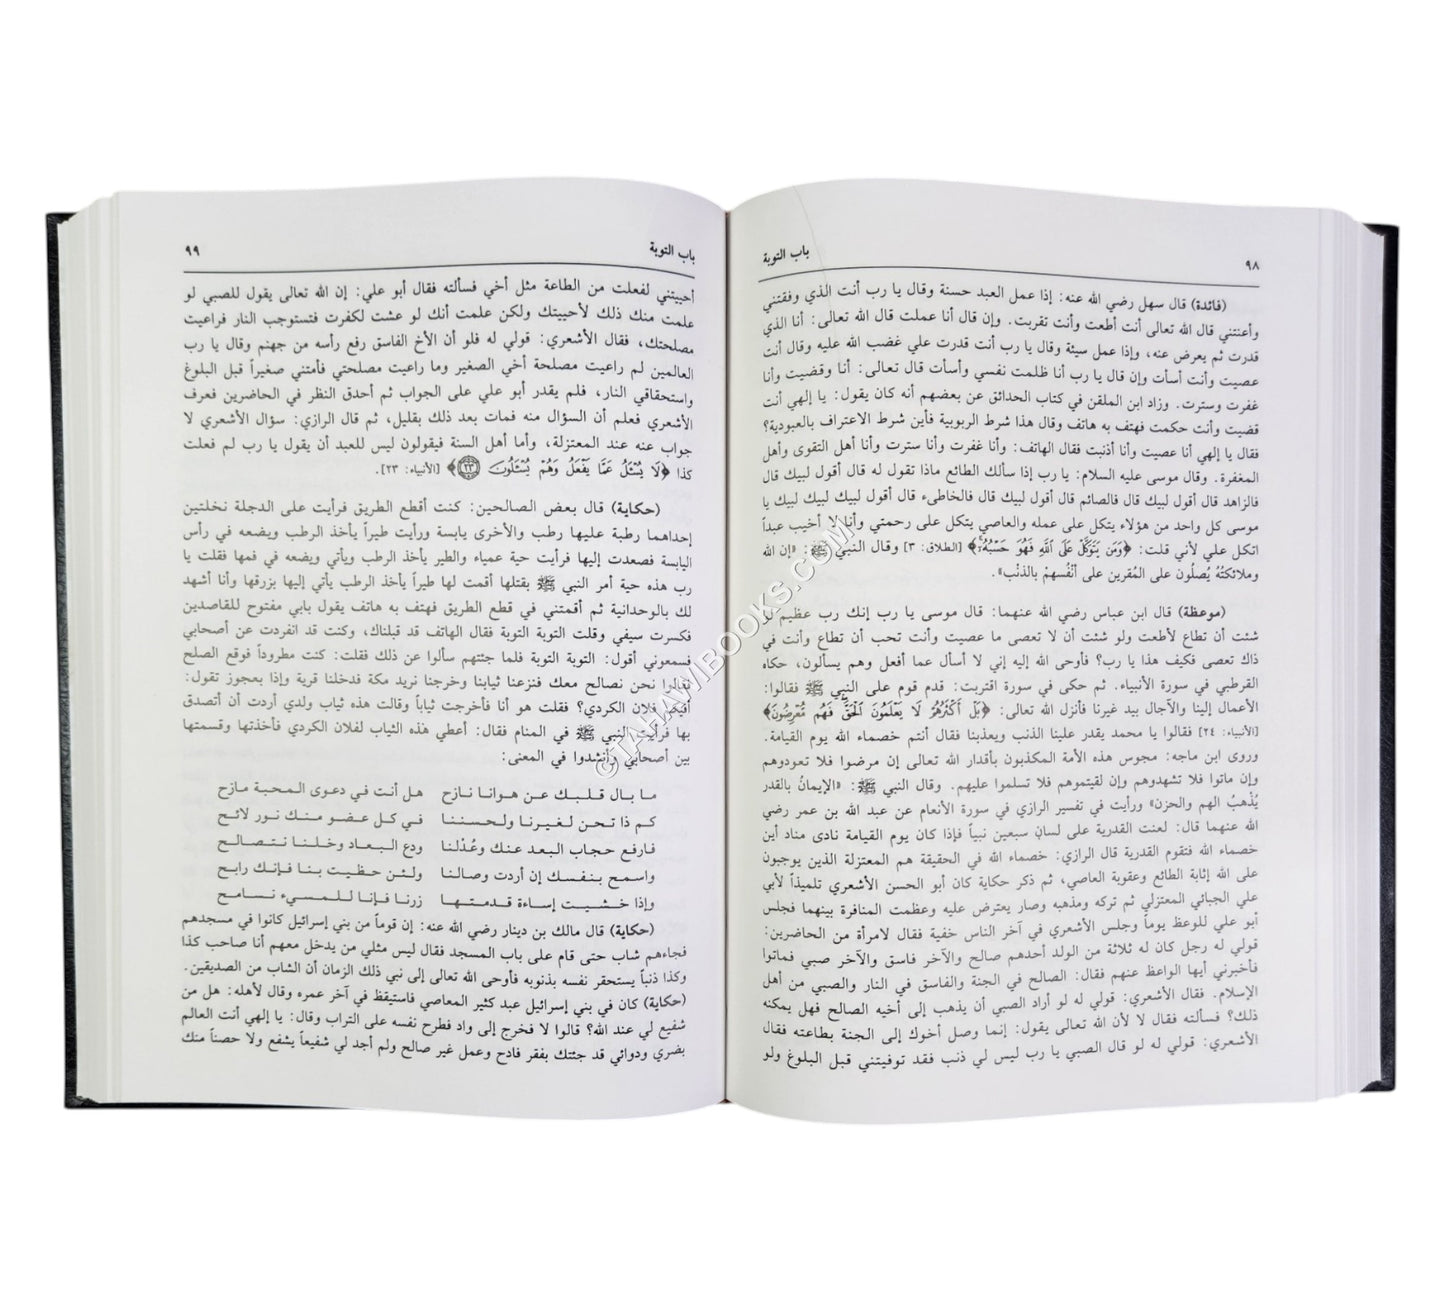 ٩٨
باب التوبة
(فائدة) قال سهل رضي الله عنه: إذا عمل العبد حسنة وقال يا رب أنت الذي وفقتني
وأعنتني قال الله تعالى أنت أطعت وأنت تقربت. وإن قال أنا عملت قال الله تعالى: أنا الذي
قدرت ثم يعرض عنه، وإذا عمل سيئة وقال يا رب أنت قدرت علي غضب الله عليه وقال أنت
عصيت وأنت أسأت وإن قال يا رب أنا ظلمت نفسي وأسأت قال تعالى: أنا وقضيت وأنا
غفرت وسترت. وزاد ابن الملقن في كتاب الحدائق عن بعضهم أنه كان يقول: يا إلهي أنت
قضيت وأنت حكمت فهتف به هاتف وقال هذا شرط الربوبية فأين شرط الاعتراف بالعبودية؟
فقال يا إلهي أنا عصيت وأنا أذنبت فقال الهاتف: وأنا غفرت وأنا سترت وأنا أهل التقوى وأهل
المغفرة. وقال موسى عليه السلام: يا رب إذا سألك الطائع ماذا تقول له قال أقول لبيك قال
فالزاهد قال أقول لبيك قال فالصائم قال أقول لبيك قال فالخاطىء قال أقول لبيك لبيك لبيك يا
موسى كل واحد من هؤلاء يتكل على عمله والعاصي يتكل على رحمتي وأنا لا أخيب عبداً
اتكل علي لأني قلت: ﴿وَمَن يَتَوَكَّلْ عَلَى ٱللَّهِ فَهُوَ حَسْبُهُۥٓ﴾ [الطلاق: ٣] وقال النبي ﷺ: «إن الله
وملائكتُهُ يُصلّون على المقرين على أنْفُسهمْ بالذنْب».
(موعظة) قال ابن عباس رضي الله عنهما: قال موسى يا رب إنك رب عظيم لو
شئت أن تطاع لأطعت ولو شئت أن لا تعصى ما عصيت وأنت تحب أن تطاع وأنت في
ذاك تعصى فكيف هذا يا رب؟ فأوحى الله إليه إني لا أسأل عما أفعل وهم يسألون، حكاه
القرطبي في سورة الأنبياء. ثم حكى في سورة اقتربت: قدم قوم على النبي ﷺ فقالوا:
الأعمال إلينا والآجال بيد غيرنا فأنزل الله تعالى: ﴿بَلْ أَكْثَرُهُمْ لَا يَعْلَمُونَ ٱلْحَقَّ فَهُم مُّعْرِضُونَ﴾
[الأنبياء: ٢٤] فقالوا يا محمد يقدر علينا الذنب ويعذبنا فقال أنتم خصماء الله يوم القيامة.
وروى ابن ماجه: مجوس هذه الأمة المكذبون بأقدار الله تعالى إن مرضوا فلا تعودوهم
وإن ماتوا فلا تشهدوهم وإن لقيتموهم فلا تسلموا عليهم. وقال النبي ﷺ: «الإيمانُ بالقدر
يُذْهبُ الهم والحزن» ورأيت في تفسير الرازي في سورة الأنعام عن عبد الله بن عمر رضي
الله عنهما قال: لعنت القدرية على لسان سبعين نبياً فإذا كان يوم القيامة نادى مناد أين
خصماء الله فتقوم القدرية قال الرازي: خصماء الله في الحقيقة هم المعتزلة الذين يوجبون
على الله إثابة الطائع وعقوبة العاصي، ثم ذكر حكاية كان أبو الحسن الأشعري تلميذاً لأبي
علي الجبائي المعتزلي ثم تركه ومذهبه وصار يعترض عليه وعظمت المنافرة بينهما فجلس
أبو علي للوعظ يوماً وجلس الأشعري في آخر الناس خفية فقال لامرأة من الحاضرين:
قولي له رجل كان له ثلاثة من الولد أحدهم صالح والآخر فاسق والآخر صبي فماتوا
فأخبرني أيها الواعظ عنهم فقال: الصالح في الجنة والفاسق في النار والصبي من أهل
الإسلام. فقال الأشعري: قولي له لو أراد الصبي أن يذهب إلى أخيه الصالح فهل يمكنه
ذلك؟ فسألته فقال لا لأن الله تعالى يقول: إنما وصل أخوك إلى الجنة بطاعته فقال
الأشعري: قولي له لو قال الصبي يا رب ليس لي ذنب فقد توفيتني قبل البلوغ ولو
باب التوبة
٩٩
أحييتني لفعلت من الطاعة مثل أخي فسألته فقال أبو علي: إن الله تعالى يقول للصبي لو
علمت منك ذلك لأحييتك ولكن علمت أنك لو عشت لكفرت فتستوجب النار فراعيت
مصلحتك، فقال الأشعري: قولي له فلو أن الأخ الفاسق رفع رأسه من جهنم وقال يا رب
العالمين لم راعيت مصلحة أخي الصغير وما راعيت مصلحتي فأمتني صغيراً قبل البلوغ
واستحقاقي النار، فلم يقدر أبو علي على الجواب ثم أحدق النظر في الحاضرين فعرف
الأشعري فعلم أن السؤال منه فمات بعد ذلك بقليل، ثم قال الرازي: سؤال الأشعري لا
جواب عنه عند المعتزلة، وأما أهل السنة فيقولون ليس للعبد أن يقول يا رب لم فعلت
كذا ﴿لَا يُسْـَٔلُ عَمَّا يَفْعَلُ وَهُمْ يُسْـَٔلُونَ ٢٣﴾ [الأنبياء: ٢٣].
(حكاية) قال بعض الصالحين: كنت أقطع الطريق فرأيت على الدجلة نخلتين
إحداهما رطبة عليها رطب والأخرى يابسة ورأيت طيراً يأخذ الرطب ويضعه في رأس
اليابسة فصعدت إليها فرأيت حية عمياء والطير يأخذ الرطب ويأتي ويضعه في فمها فقلت يا
رب هذه حية أمر النبي ﷺ بقتلها أقمت لها طيراً يأخذ الرطب يأتي إليها بزرقها وأنا أشهد
لك بالوحدانية ثم أقمتني في قطع الطريق فهتف به هاتف يقول بابي مفتوح للقاصدين
فكسرت سيفي وقلت التوبة التوبة فقال الهاتف قد قبلناك، وكنت قد انفردت عن أصحابي
فسمعوني أقول: التوبة التوبة فلما جئتهم سألوا عن ذلك فقلت: كنت مطروداً فوقع الصلح
فقالوا نحن نصالح معك فنزعنا ثيابنا وخرجنا نريد مكة فدخلنا قرية وإذا بعجوز تقول:
أفيكم فلان الكردي؟ فقلت هو أنا فأخرجت ثياباً وقالت هذه ثياب ولدي أردت أن أتصدق
بها فرأيت النبي ﷺ في المنام فقال: أعطي هذه الثياب لفلان الكردي فأخذتها وقسمتها
بين أصحابي وأنشدوا في المعنى:
ما بال قلبك عن هوانا نازح هل أنت في دعوى المحبة مازح
كم ذا تحن لغيرنا ولحسننا في كل عضو منك نور لائح
فارفع حجاب البعد عنك وعُدْلنا ودع البعاد وخلنا نتصالح
واسمح بنفسك إن أردت وصالنا ولئن حظيت بنا فإنك رابح
وإذا خشيت إساءة قدمتها زرنا فإنا للمسيء نسامح
(حكاية) قال مالك بن دينار رضي الله عنه: إن قوماً من بني إسرائيل كانوا في مسجدهم
فجاءهم شاب حتى قام على باب المسجد فقال ليس مثلي من يدخل معهم أنا صاحب كذا
وكذا ذنباً يستحقر نفسه بذنوبه فأوحى الله تعالى إلى نبي ذلك الزمان أن الشاب من الصديقين.
(حكاية) كان في بني إسرائيل عبد كثير المعاصي فاستيقظ في آخر عمره وقال لأهله: هل من
شفيع لي عند الله؟ قالوا لا فخرج إلى واد فطرح نفسه على التراب وقال: يا إلهي أنت العالم
بضري ودوائي قد جئتك بفقر فادح وعمل غير صالح ولم أجد لي شفيعاً يشفع ولا حصناً منك
©TAHAMIBOOKS.COM